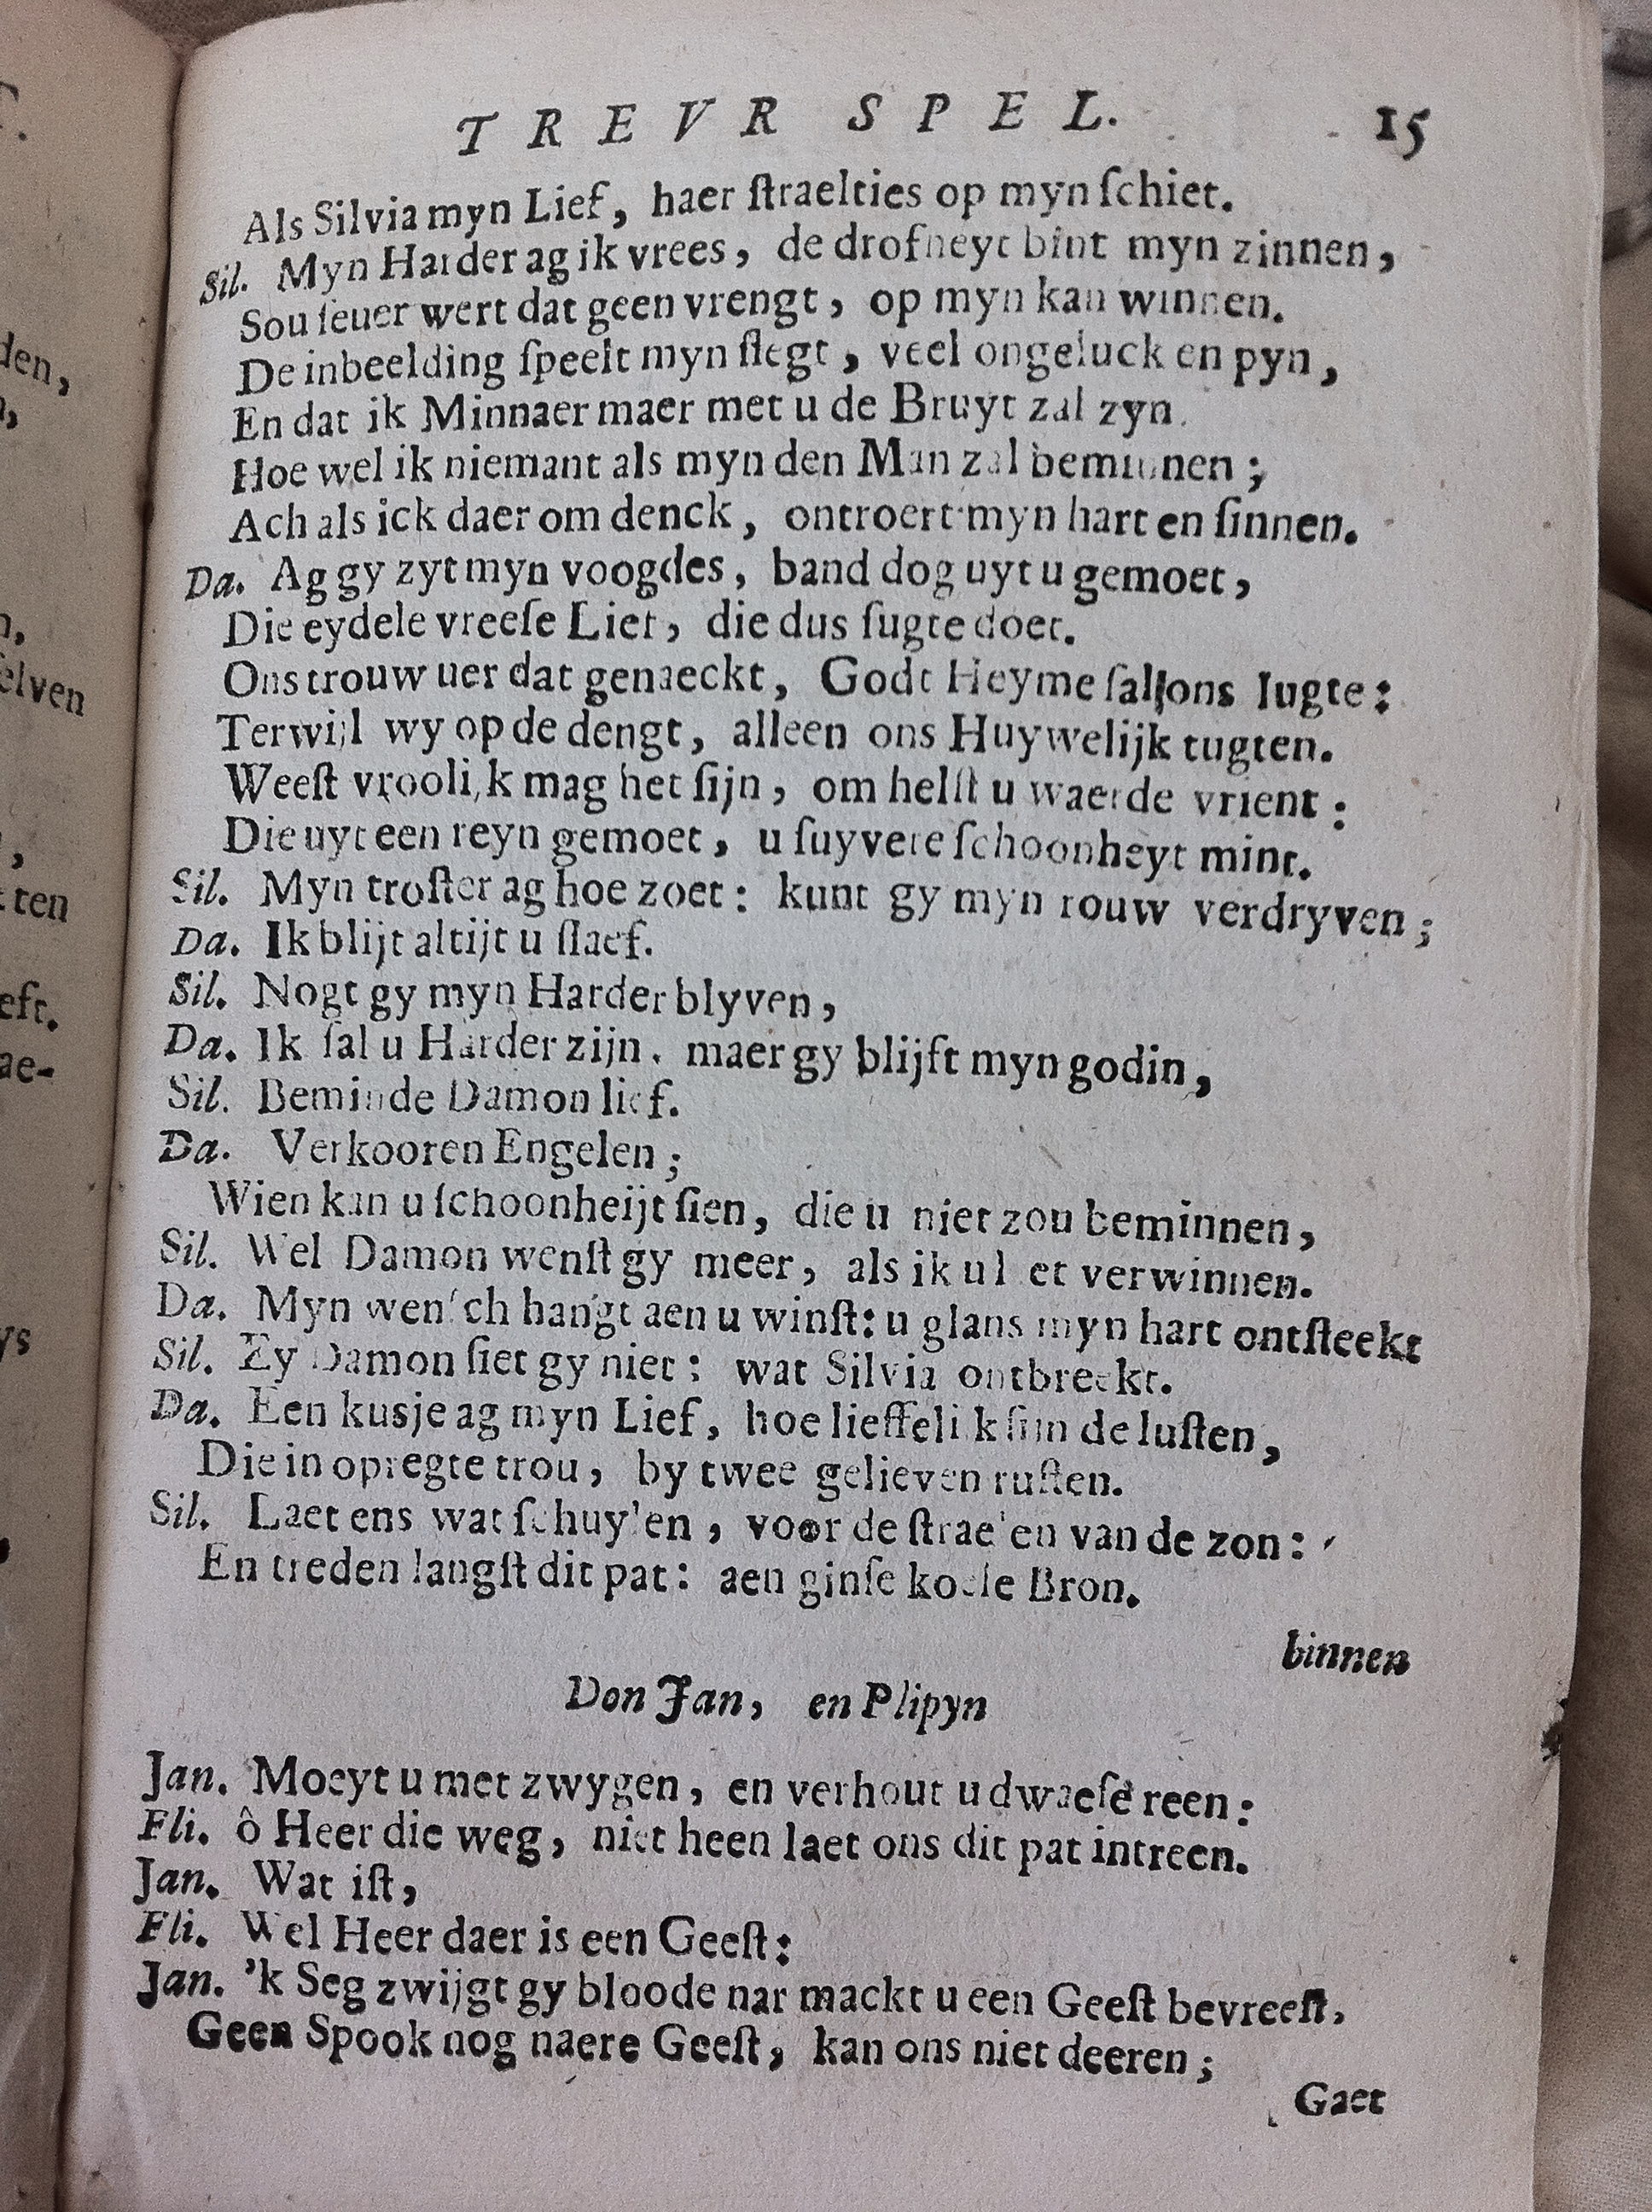 TREVR SPEL. 15
Als Silvia myn Lief, haer ſtraelties op myn ſchiet.
Sil. Myn Harder ag ik vrees, de drofneyt bint myn zinnen,
Sou ieuer wert dat geen vrengt, op myn kan winnen.
De inbeelding ſpeelt myn ſlegt, veel ongeluck en pyn,
En dat ik Minnaer maer met u de Bruyt zal zyn.
Hoe wel ik niemant als myn den Man zal beminnen;
Ach als ick daer om denck, ontroert myn hart en ſinnen.
Da. Ag gy zyt myn voogdes, band dog uyt u gemoet,
Die eydele vreeſe Lief, die dus ſugte doet.
Ons trouw uer dat genaeckt, Godt Heyme ſal ons Iugte:
Terwijl wy op de dengt, alleen ons Huywelijk tugten.
Weeſt vroolijk mag het ſijn, om helſt u waerde vrient:
Die uyt een reyn gemoet, u ſuyvere ſchoonheyt mint.
Sil. Myn troſter ag hoe zoet: kunt gy myn rouw verdryven;
Da. Ik blijt altijt u ſlaef.
Sil. Nogt gy myn Harder blyven,
Da. Ik ſal u Harder zijn, maer gy blijft myn godin,
Sil. Beminde Damon lief.
Da. Verkooren Engelen;
Wien kan u ſchoonheijt ſien, die u niet zou beminnen,
Sil. Wel Damon wenſt gy meer, als ik u l et verwinnen.
Da. Myn wenſch hangt aen u winſt: u glans myn hart ontſteekt
Sil. Zy Damon ſiet gy niet: wat Silvia ontbreekt.
Da. Een kusje ag myn Lief, hoe lieffelijk ſijn de luſten,
Die in opregte trou, by twee gelieven ruſten.
Sil. Laet ens wat ſchuy'en, voor de ſtrae'en van de zon:
En treden langſt dit pat: aen ginſe koele Bron.
binnen
Don Jan, en Plipyn
Jan. Moeyt u met zwygen, en verhout u dwaeſe reen:
Fli. ô Heer die weg, niet heen laet ons dit pat intreen.
Jan. Wat iſt,
Fli. Wel Heer daer is een Geeſt:
Jan. 'k Seg zwijgt gy bloode nar mackt u een Geeſt bevreeſt,
Geen Spook nog naere Geeſt, kan ons niet deeren;
Gaet
den,
n,
elven
ten
eft.
ae-
ys